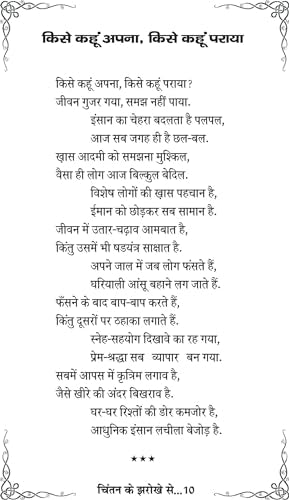 किसे कहूं अपना, किसे कहूं पराया
किसे कहूं अपना, किसे कहूं पराया?
जीवन गुजर गया, समझ नहीं पाया.
इंसान का चेहरा बदलता है पलपल,
आज सब जगह ही है छल-बल.
ख़ास आदमी को समझना मुश्किल,
वैसा ही लोग आज बिल्कुल बेदिल.
विशेष लोगों की ख़ास पहचान है,
ईमान को छोड़कर सब सामान है.
जीवन में उतार-चढ़ाव आमबात है,
किंतु उसमें भी षडयंत्र साक्षात है.
अपने जाल में जब लोग फंसते हैं,
घरियाली आंसू बहाने लग जाते हैं.
फँसने के बाद बाप-बाप करते हैं,
किंतु दूसरों पर ठहाका लगाते हैं.
स्नेह-सहयोग दिखावे का रह गया,
प्रेम-श्रद्धा सब व्यापार बन गया.
सबमें आपस में कृत्रिम लगाव है,
जैसे खीरे की अंदर बिखराव है.
घर-घर रिश्तों की डोर कमजोर है,
आधुनिक इंसान लचीला बेजोड़ है.
***
चिंतन के झरोखे से...10